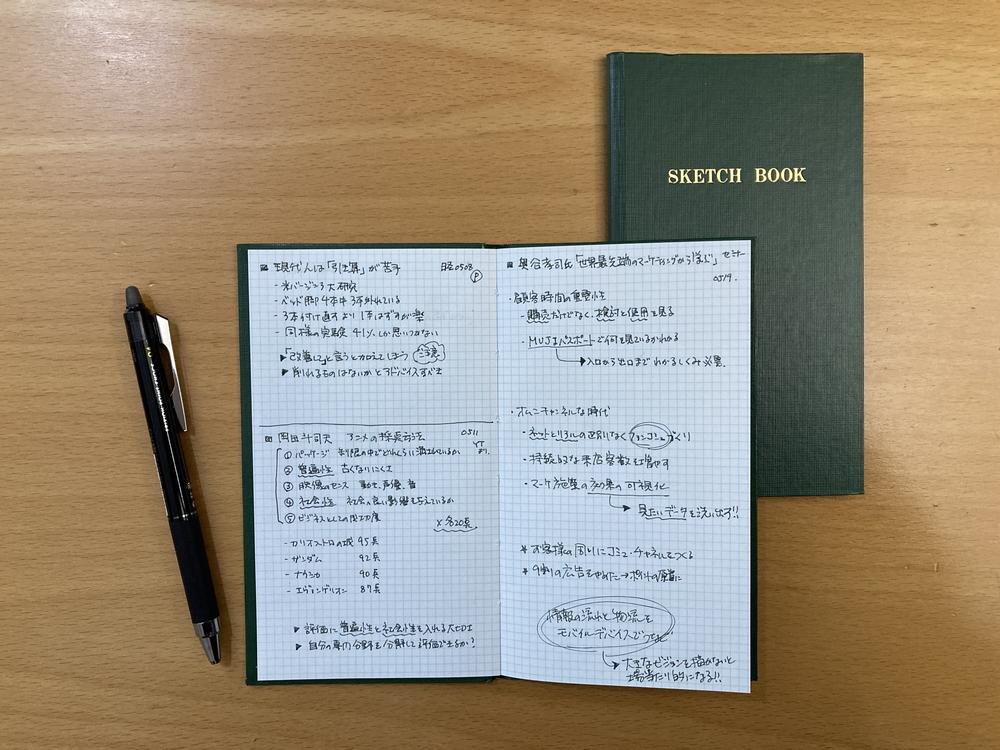 SKETCH BOOK
現代人は「引き算」が苦手 日経0508 P
- 米バージニア大研究
- ベッド脚 4本中 3本外れている
- 3本付け直すより 1本はずすが楽
- 同様の実験 41%しか思いつかない
▶「改善して」と言うと加えてしまう ご注意
▶ 削れるものはないかとアドバイスすべき
岡田斗司夫 アニメの採点方法 0511 YT より
① パッケージ 制限の中でどれくらい満たせているか
② 普遍性 古くなりにくさ
③ 映像のセンス 動き、声優、音
④ 社会性 社会へ良い影響を与えているか
⑤ ビジネスとしての成功度
× 各20点
- カリオストロの城 95点
- ガンダム 92点
- ナウシカ 90点
- エヴァンゲリオン 87点
▶ 評価に普遍性と社会性を入れる大切さ
▶ 自分の専門分野を分解して評価できるか?
奥谷孝司氏「世界最先端のマーケティングから学ぶ」セミナー
0519.
・顧客時間の重要性
- 購買だけでなく、検討と使用を見る
・MUJIパスポートで何を見ているかわかる
▶入口から出口までわかるしくみ必要。
・オムニチャンネルな時代
- ネットとリアルの区別なく ファンコミュ づくり
- 持続的な来店客数を増やす
- マーケ施策の効果の可視化
▶ 見たいデータを洗い出す!!
* お客様の周りにコミュ・チャネルをつくる
* 9割の広告をやめた→ポイントの原資に
情報の流れと物流を
モバイルデバイスでつなぐ
▶ 大きなビジョンを描かないと
場当たり的になる!!